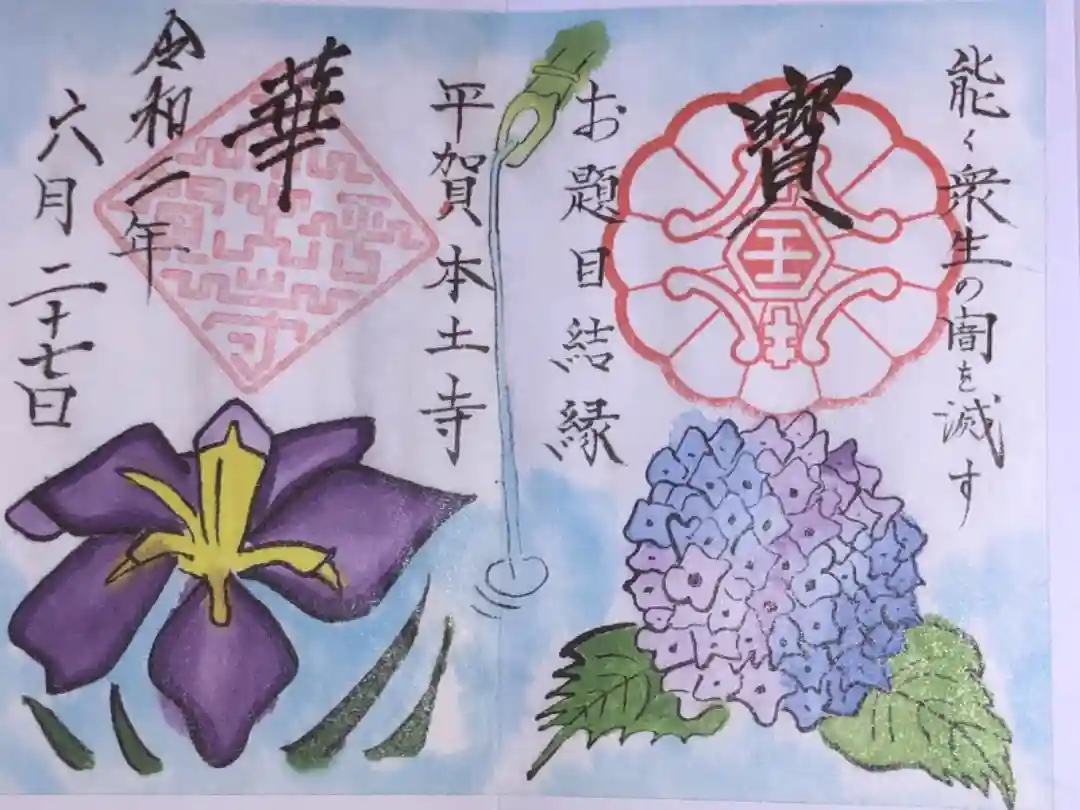 能く衆生の闇を滅す
寶
お題目結縁
平賀本土寺
華
令和二年
六月二十七日